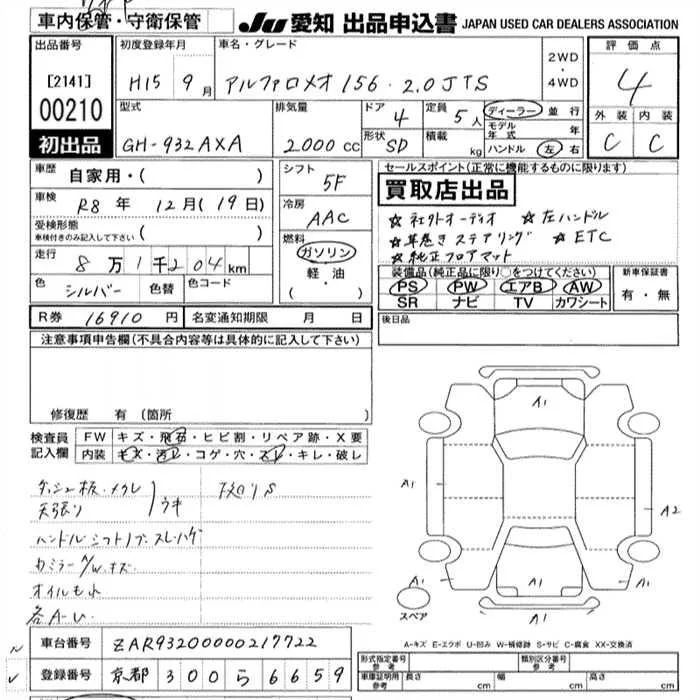 車内保管・守衛保管
JU 愛知 出品申込書 JAPAN USED CAR DEALERS ASSOCIATION
出品番号
[2141]
00210
初出品
初度登録年月
H15 9月
車名・グレード
アルファロメオ 156・2.0JTS
2WD
・
4WD
評価点
4
外装 内装
C C
型式
GH-932AXA
排気量
2.000 cc
ドア
4
形状
SD
定員
5人
積載
kg
ディーラー 並行
モデル年式 年
ハンドル 左 右
車歴 自家用・( )
車検 R8年 12月(19日)
受検形態
車検付きのみ記入して下さい ( )
走行 8万1千204km
色 シルバー 色替 色コード
シフト
5F
冷房
AAC
燃料
ガソリン
軽・油
( ・ )
セールスポイント(正常に機能するものに限ります)
買取店出品
☆ 社外オーディオ ☆ 左ハンドル
☆ 革巻きステアリング ☆ ETC
☆ 純正フロアマット
装備品(純正品に限り○をつけてください)
PS PW エアB AW
SR ナビ TV カワシート
新車保証書
有・無
R券 16910円 名変通知期限 月 日
後日品
注意事項申告欄(不具合内容等は具体的に記入して下さい)
修復歴 有 (箇所 )
検査員
記入欄
FW キズ・飛石・ヒビ割・リペア跡・X要
内装 キズ・汚レ・コゲ・穴・スレ・キレ・破レ
ダッシュ板・メクレ
天張り
ウキ
ハンドル シフトノブ・スレ・ハゲ
カミラー A/W キズ
オイルもれ
各A-U
A1
A1
A2
A1
A1
A1
A1
スペア
A-キズ E-エクボ U-凹み W-補修跡 S-サビ C-腐食 XX-交換済
車台番号 ZAR93200000217722
登録番号 京都 300 ら 6659
形式指定番号 参考
類別区分番号 参考
車庫証明用 参考 長さ cm 幅 cm 高さ cm